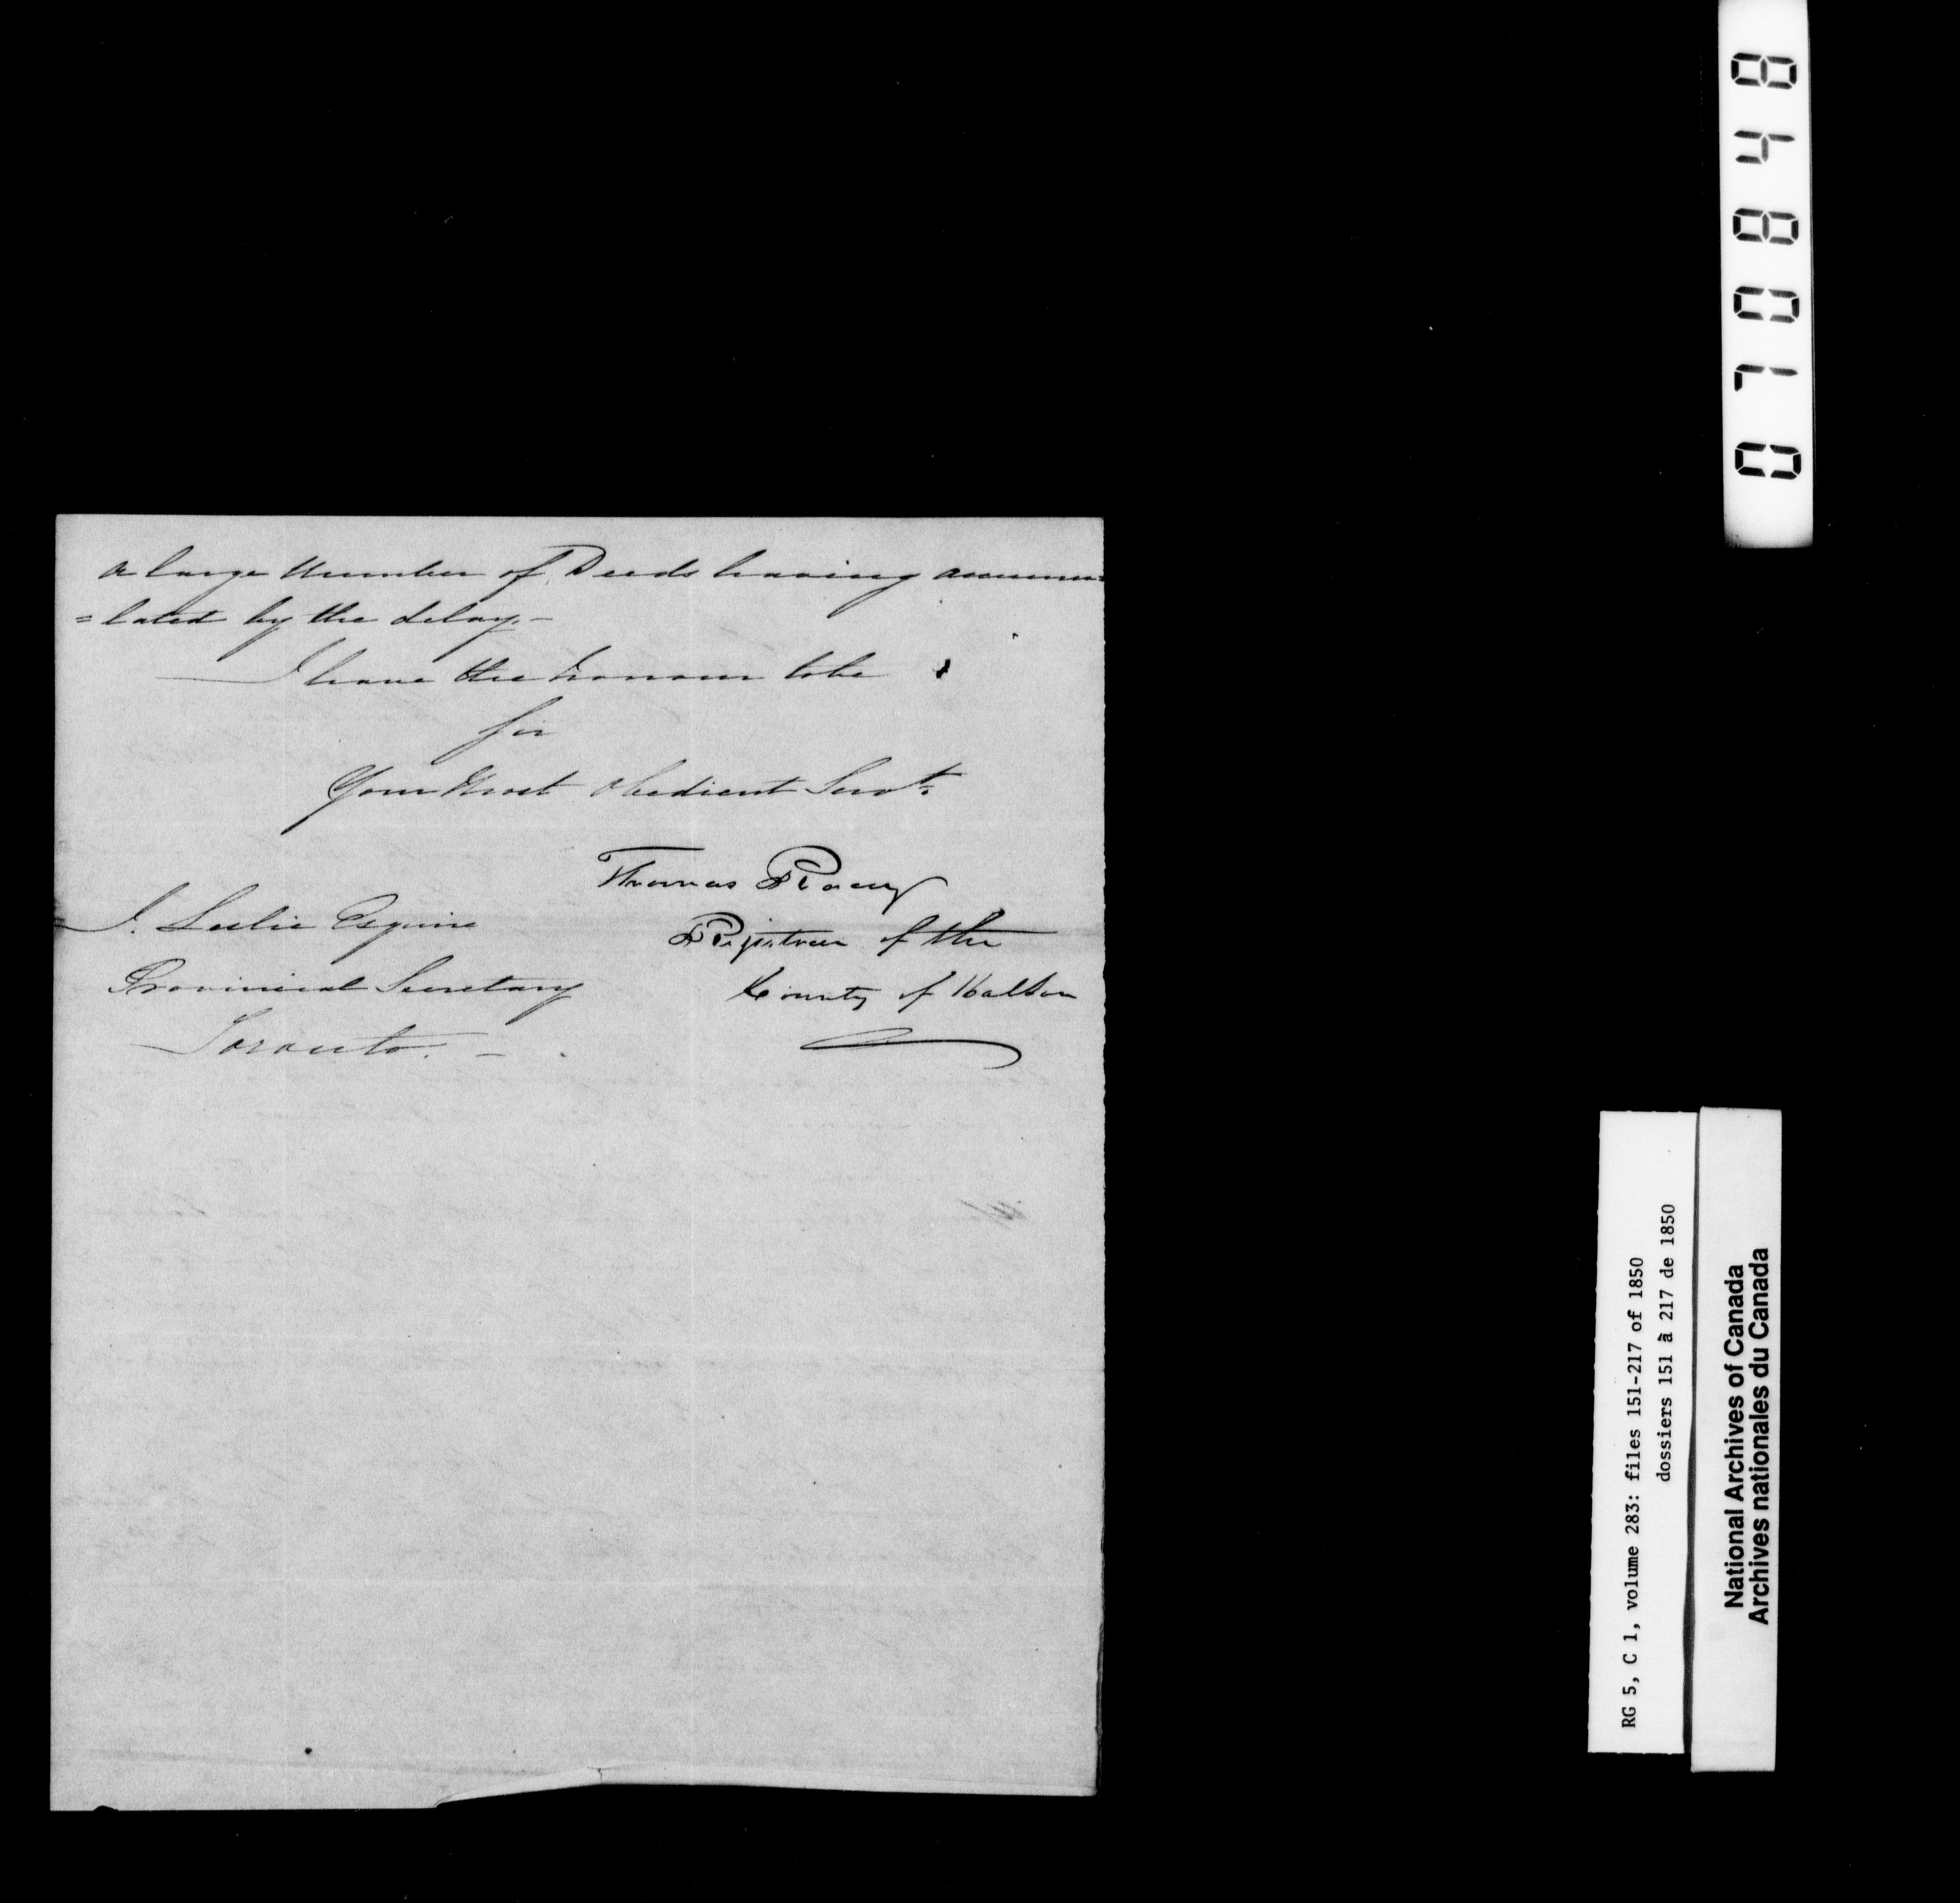 a large number of Deeds having accumu=
=lated by the delay. —
I have the honour to be
Sir
Your Most Obedient Servt.
Thomas Racey
Registrar of the
County of Halton
J. Leslie Esquire
Provincial Secretary
Toronto. —
084807
RG 5, C 1, volume 283: files 151-217 of 1850
dossiers 151 à 217 de 1850
National Archives of Canada
Archives nationales du Canada